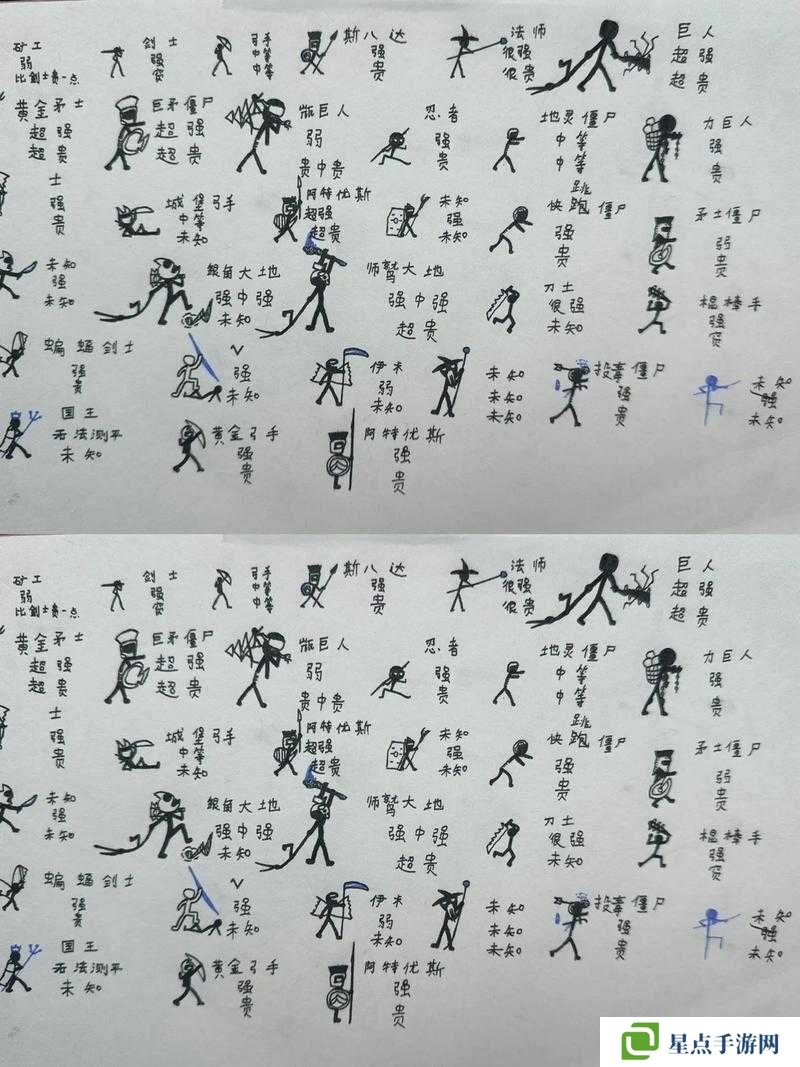 矿工
弱
比剑士贵一点
剑士
强
贫
弓手
中等
中等
斯八达
强
贵
法师
很强
很贵
巨人
超强
超贵
黄金矛士
超强
超贵
巨矛僵尸
超强
超贵
巨人
弱
贵中贵
忍者
强
贵
地灵僵尸
中等
中等
力巨人
强
贵
士
强
贵
城堡弓手
中等
未知
阿特优斯
超强
超贵
未知
强
未知
跳
快跑僵尸
强
贵
矛士僵尸
弱
贵
未知
强
未知
狼角大地
强中强
未知
师鹫大地
强中强
超贵
刀士
很强
未知
棍棒手
强
贫
蝙蝠剑士
强
贵
V
强
未知
伊未
弱
未知
未知
未知
未知
投毒僵尸
强
贵
未知
强
未知
国王
无法测平
未知
黄金弓手
强
贵
阿特优斯
强
贵
矿工
弱
比剑士贵一点
剑士
强
贫
弓手
中等
中等
斯八达
强
贵
法师
很强
很贵
巨人
超强
超贵
黄金矛士
超强
超贵
巨矛僵尸
超强
超贵
巨人
弱
贵中贵
忍者
强
贵
地灵僵尸
中等
中等
力巨人
强
贵
士
强
贵
城堡弓手
中等
未知
阿特优斯
超强
超贵
未知
强
未知
跳
快跑僵尸
强
贵
矛士僵尸
弱
贵
未知
强
未知
狼角大地
强中强
未知
师鹫大地
强中强
超贵
刀士
很强
未知
棍棒手
强
贫
蝙蝠剑士
强
贵
V
强
未知
伊未
弱
未知
未知
未知
未知
投毒僵尸
强
贵
未知
强
未知
国王
无法测平
未知
黄金弓手
强
贵
阿特优斯
强
贵
星点手游网